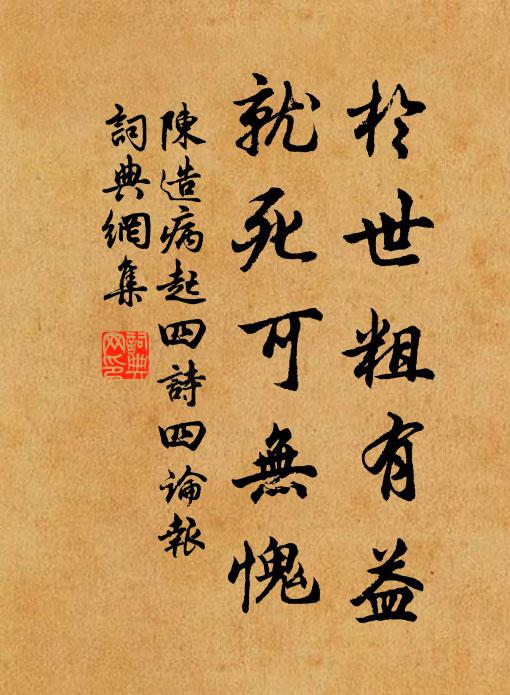 於世粗有益
就死可無愧
陳造病起四詩四論報
詞典網集
詞典
网印